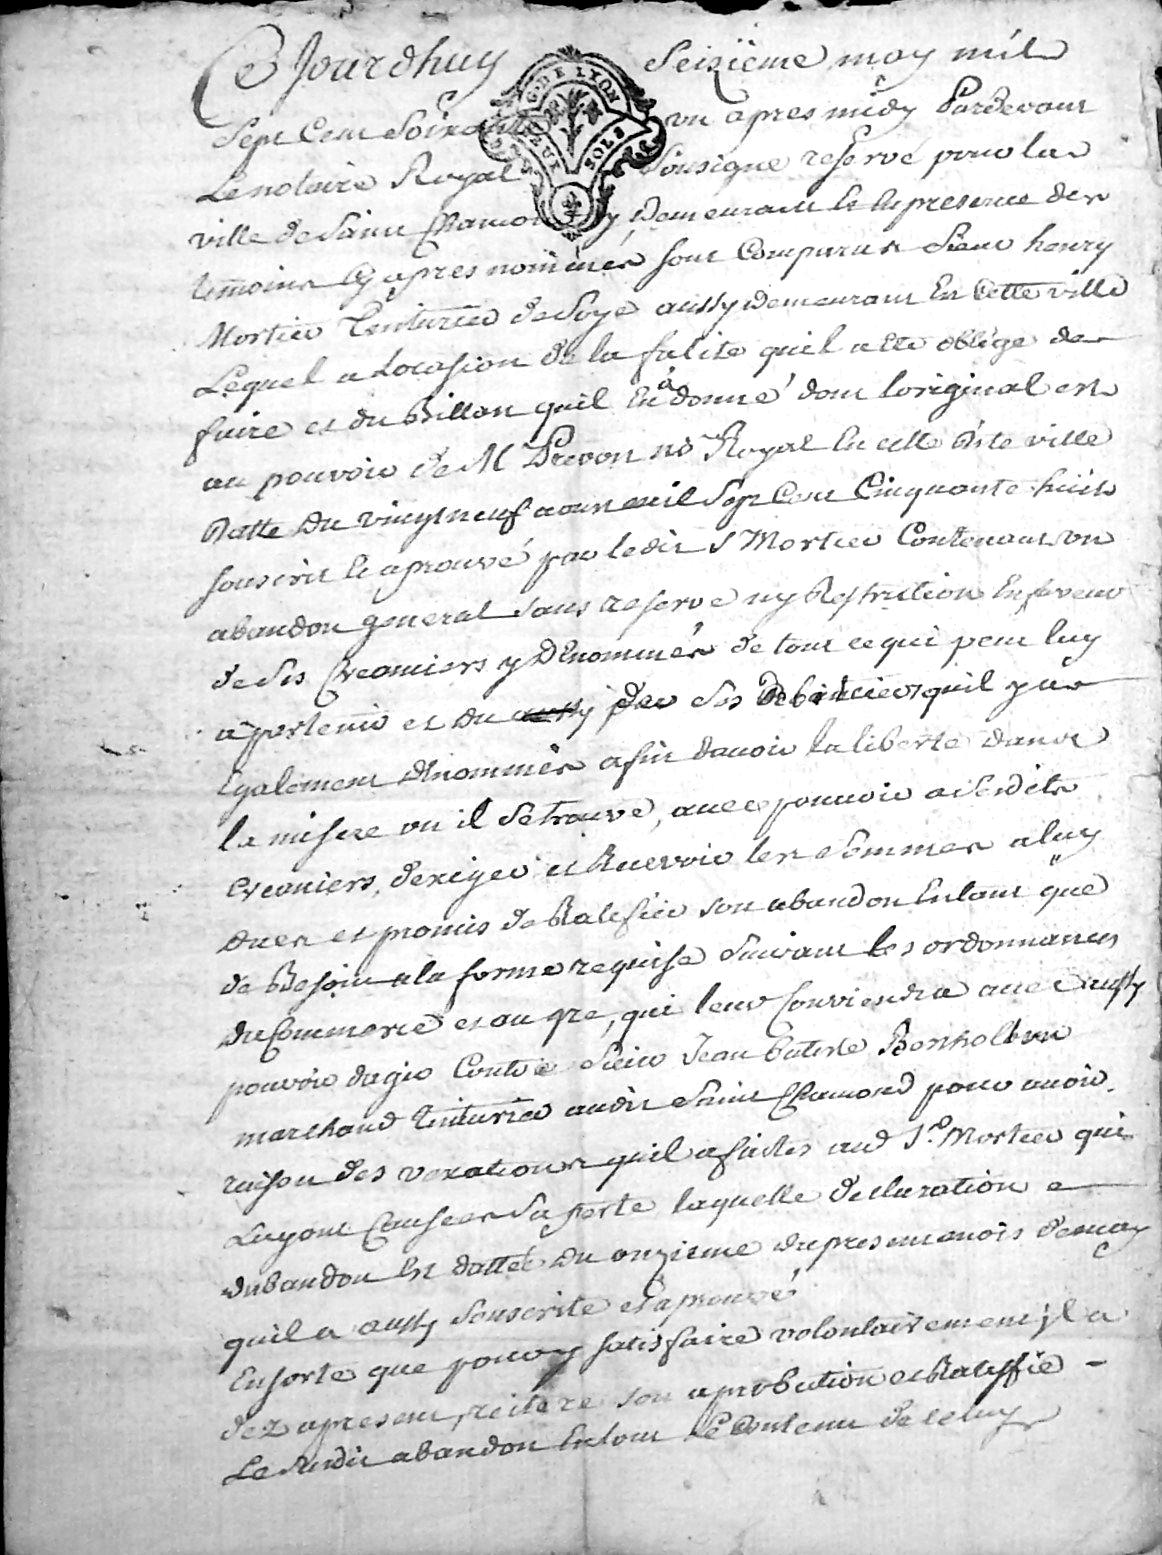 Ce Jourdhuy Seizieme may mil
G. DE LYON
DEUX SOLS
Sept Cent Soixante un apres midy Pardevant
Le notaire Royal sousigne reservé pour la
ville de Saint Chamond y demeurant & en presence des
temoins cy apres nommés sont Comparus Sieur henry
Mortier Teinturier de Soye aussy demeurant En Cette ville
Lequel a Locasion de la falite quil a ete oblige de
faire et du Billan quil En à donné dont loriginal est
au pouvoir de M Prevost no.re Royal En cette dite ville
Datte Du vingt neuf aoust mil Sept Cent Cinquante huit
souscrit & aprouvé par ledit S Mortier Contenant un
abandon general sans reserve ny Restriction En faveur
de ses Creanciers y Dénommés de tout ce qui peut luy
apartenir et du par ses Debiteurs quil y a
Egalement dénommés afin davoir la liberté dans
la misere ou il se trouve, avec pouvoir a sesdits
Creanciers dexiger et Recevoir les sommes a luy
dues et promis de Ratifier son abandon En tant que
de Besoin a la forme requise suivant les ordonnances
du Commerce et au gre, qui leur Conviendra avec aussy
pouvoir dagir Contre Sieur Jean batiste Bertholon
marchand teinturier audit Saint Chamond pour avoir
raison des vexations quil a faites aud S.r Mortier qui
Luy ont Causees Sa perte laquelle declaration
dabandon Est dattee Du onzieme du present mois de may
quil a aussy souscrite et aprouvé
En sorte que satisfaire volontairement jl a
dez apresent, reitere son aprobation et Ratiffié -
Le susdit abandon En tout Le Contenu de celuy